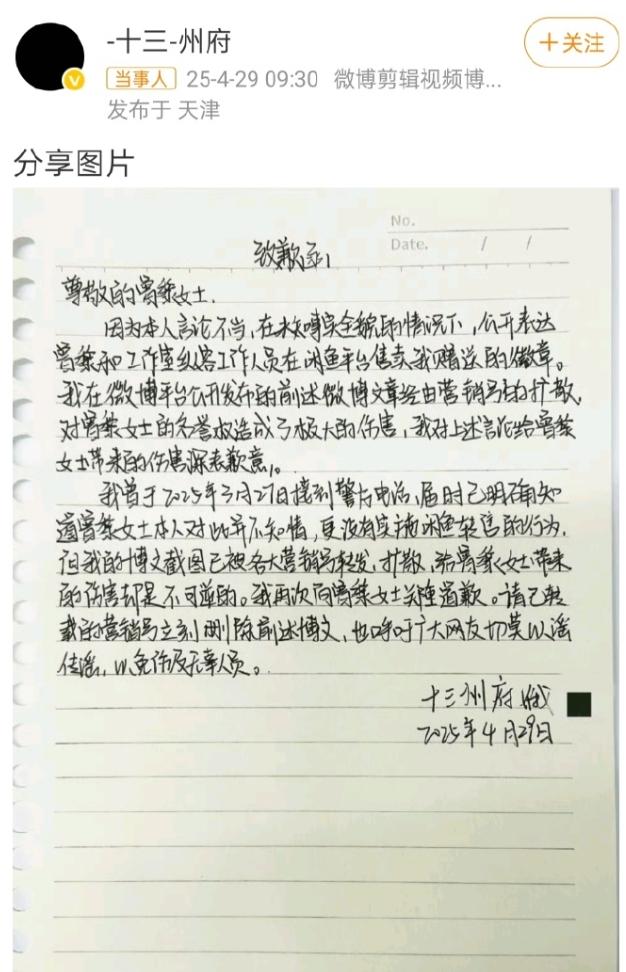 -十三-州府
+关注
当事人 25-4-29 09:30 微博剪辑视频博...
发布于 天津
分享图片
No.
Date. / /
致歉函
尊敬的曾黎女士:
因为本人言论不当,在未知事实全貌的情况下,公开表达
曾黎和工作室纵容工作人员在闲鱼平台售卖我赠送的徽章。
我在微博平台公开发布的前述微博文章经由营销号的扩散,
对曾黎女士的名誉权造成了极大的伤害,我对上述言论给曾黎
女士带来的伤害深表歉意。
我曾于2025年3月27日接到警方电话,届时已明确知
道曾黎女士本人对此并不知情,更没有实施闲鱼转售的行为,
但我的博文截图已被各大营销号转发、扩散,给曾黎女士带来
的伤害却是不可逆的。我再次向曾黎女士郑重道歉。请已转
载的营销号立刻删除前述博文,也呼吁广大网友切莫以谣
传谣,以免伤及无辜人员。
十三州府
2025年4月29日